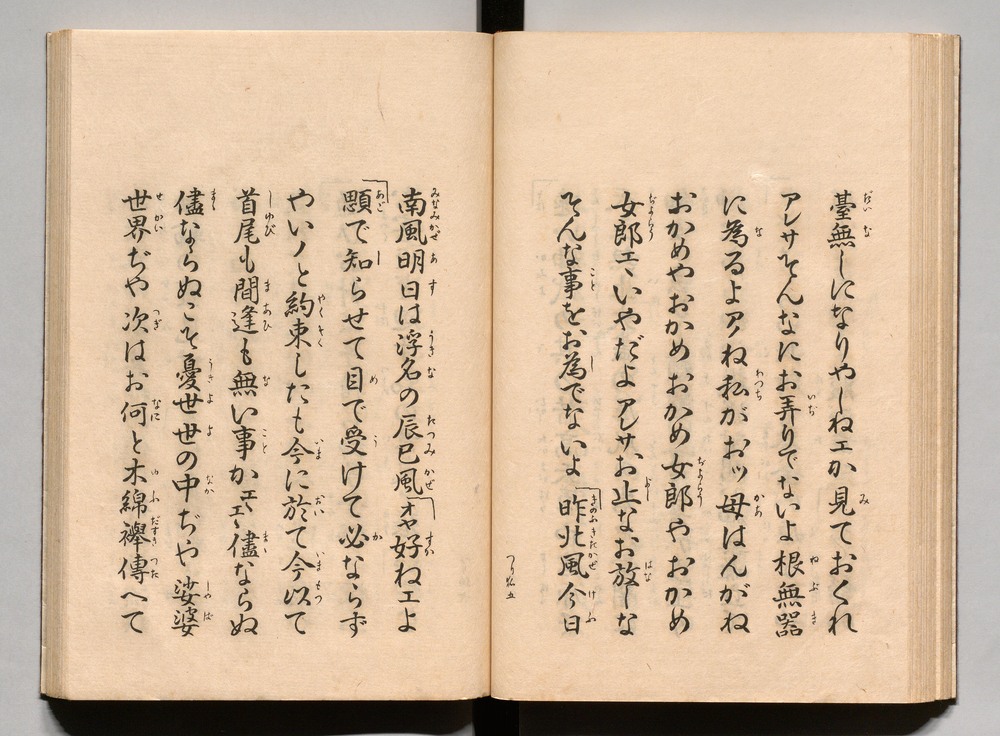 臺無しになりやしねエか見ておくれ
アレサそんなにお弄りでないよ根無器
に為るよアね私がおッ母はんがね
おかめやおかめおかめ女郎やおかめ
女郎エヽいやだよアレサお止なお放しな
そんな事をお為でないよ「昨北風今日
南風明日は浮名の辰巳風「オヤ好ねエよ
「顋で知らせて目で受けて必ならず
やいノと約束したも今に於て今以て
首尾も間逢も無い事かエヽ儘ならぬ
儘ならぬこそ憂世世の中ぢや娑婆
世界ぢや次はお何と木綿襷傳へて